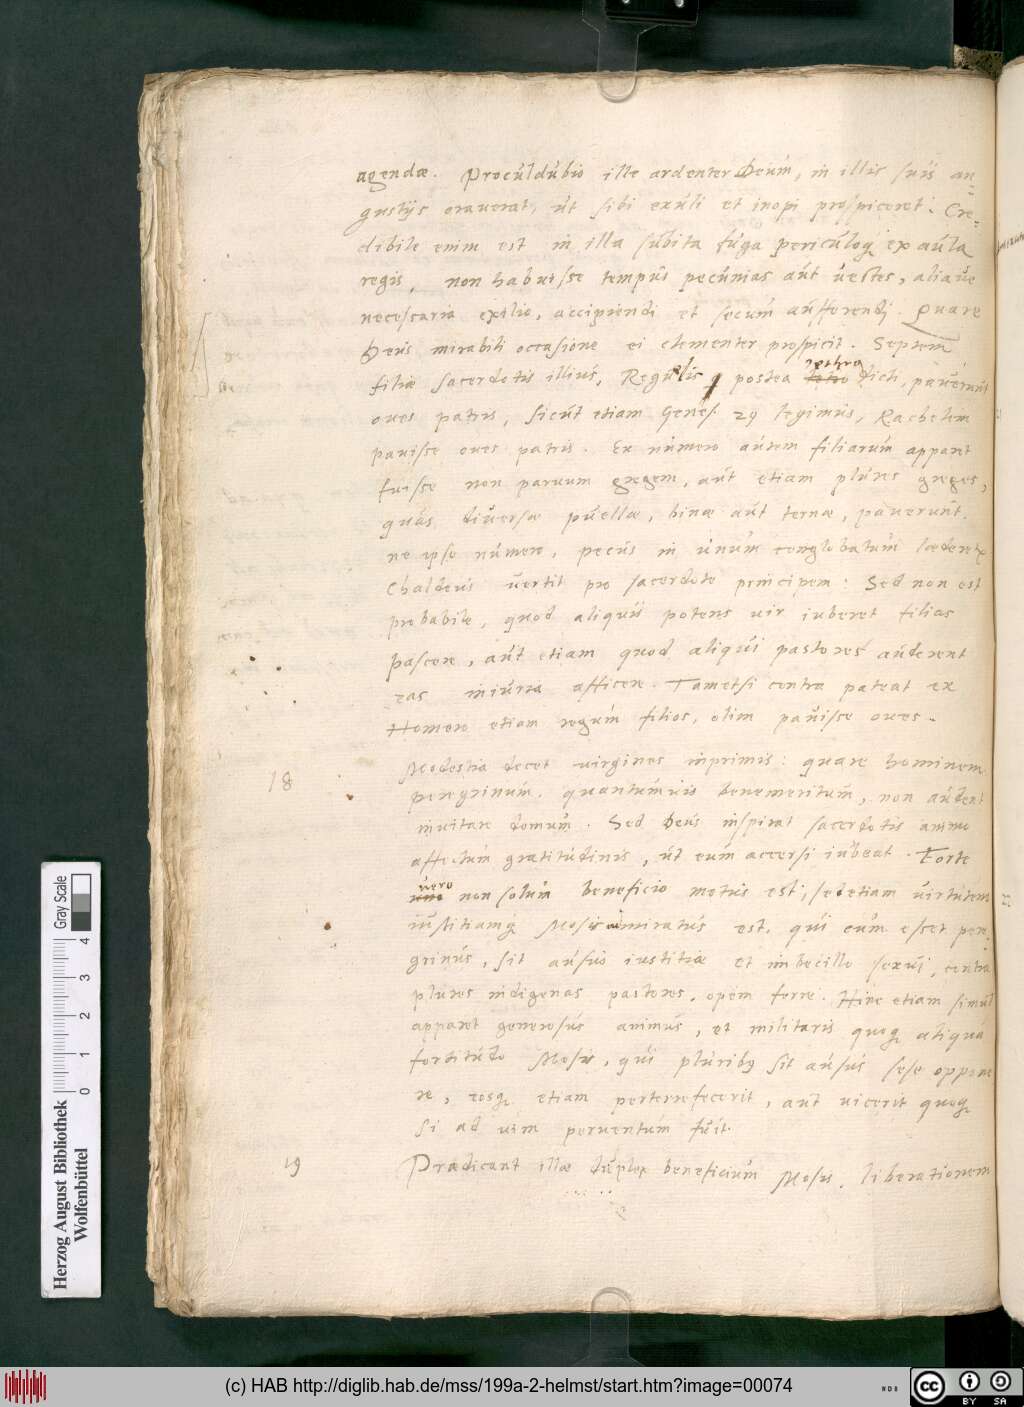 agendæ. Proculdubio ille ardenter Deum, in illis suis an
gustijs orauerat, ut sibi exuli et inopi prospiceret. Cre=
dibile enim est in illa subita fuga periculoq́ ex aula
regis, non habuisse tempus pecunias aut uestes, aliaue
necessaria exilio, accipiendi et secum aufferendj. Quare
Deus mirabili occasione ei clementer prospicit. Septem
filiæ sacerdotis illius, Reguelis q postea Jethro dicti, pauerunt
oues patris, sicut etiam Genes. 29 legimus, Rachelem
pauisse oues patris. Ex numero autem filiarum apparet
fuisse non paruum gregem, aut etiam plures greges,
quas diuersæ puellæ, binæ aut ternæ, pauerunt.
ne ipso numero, pecus in unum conglobatum læderetr
Chaldeus uertit pro sacerdote principem: Sed non est
probabile, quod aliquis potens uir iuberet filias
pascere, aut etiam quod aliqui pastores auderent
eas iniuria afficere. Tametsi contra pateat ex
Homero etiam regum filios, olim pauisse oues.
18 Modestia decet uirgines inprimis: quare hominem
peregrinum, quantumuis benemeritum, non audent
inuitare domum. Sed Deus inspirat sacerdotis animo
affectum gratitudinis, ut eum accersi iubeat. Forte
uero
non solum beneficio motus est, sed etiam uirtutem
iustitiamq́ Mosis miratus est, qui cum esset pere
grinus, sit ausus iustitiæ et imbecillo sexui, contra
plures indigenas pastores, opem ferre. Hinc etiam simul
apparet generosus animus, et militaris quoq́ aliqua
fortitudo Mosis, qui pluribq sit ausus sese oppone
re, eosq́ etiam perterrefecerit, aut uicerit quoq́
si ad uim peruentum fuit.
19 Prædicant illæ duplex beneficium Mosis, liberationem
Herzog August Bibliothek
Wolfenbüttel
0 1 2 3 4
Gray Scale
(c) HAB http://diglib.hab.de/mss/199a-2-helmst/start.htm?image=00074
cc BY SA